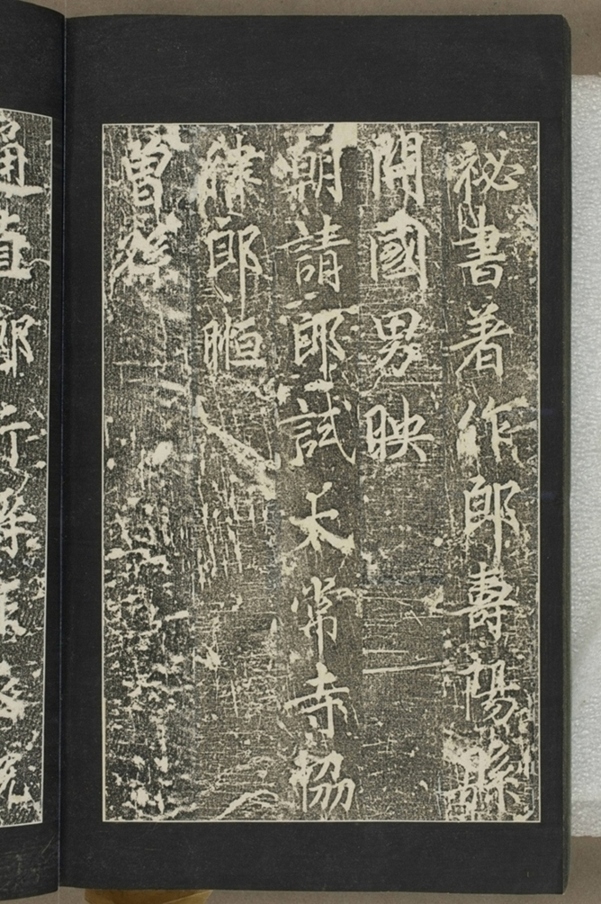 祕書著作郎壽陽縣
開國男映
朝請郎試太常寺協
律郎暅
曾孫
通直郎行